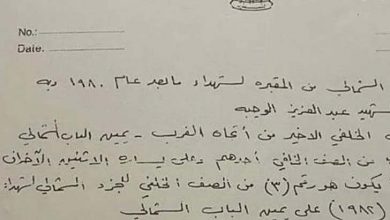 No.:
Date.
الشمالي من المقبره لشهداء ما بعد عام ١٩٨٠ وبه
شهيد عبد العزيز الوجيه
الخلفي الاخير من أتجاه الغرب - يمين الباب الشمالي
من الصف الخلفي أحدهم وعلى يساره الاثنين الآخران
يكون هو رقم (٣) من الصف الخلفي للجزء الشمالي لشهداء
(١٩٨٢) على يمين الباب الشمالي